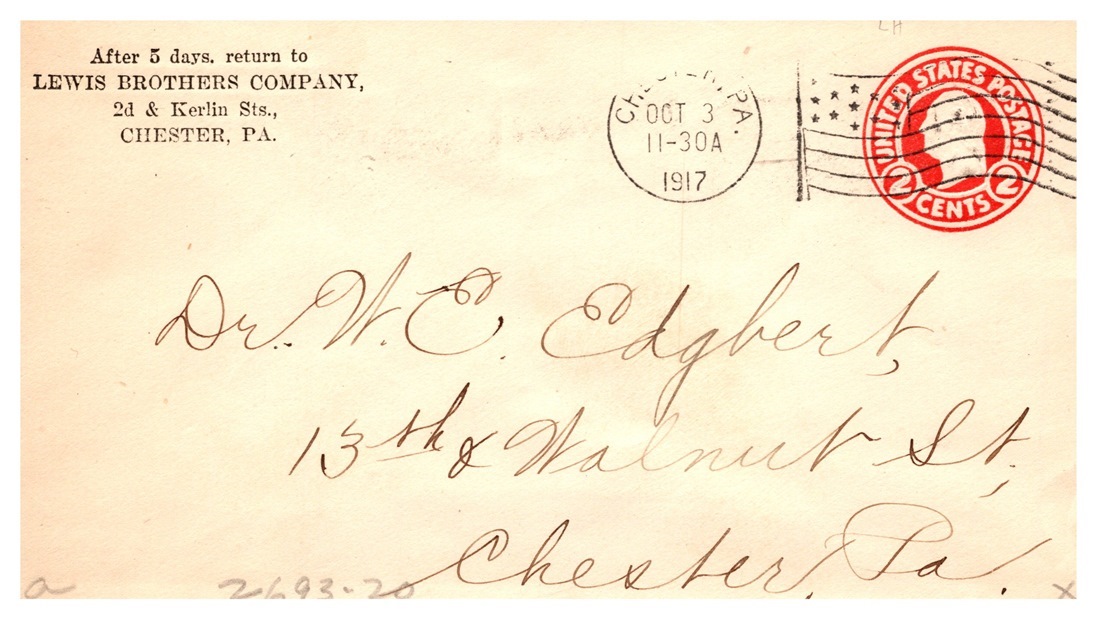 LH
After 5 days. return to
LEWIS BROTHERS COMPANY,
2d & Kerlin Sts.,
CHESTER, PA.
CHESTER, PA.
OCT 3
11-30A
1917
UNITED STATES POSTAGE
2 CENTS 2
Dr. W. E. Edgbert,
13th & Walnut St,
Chester, Pa.
a 2693-20 x